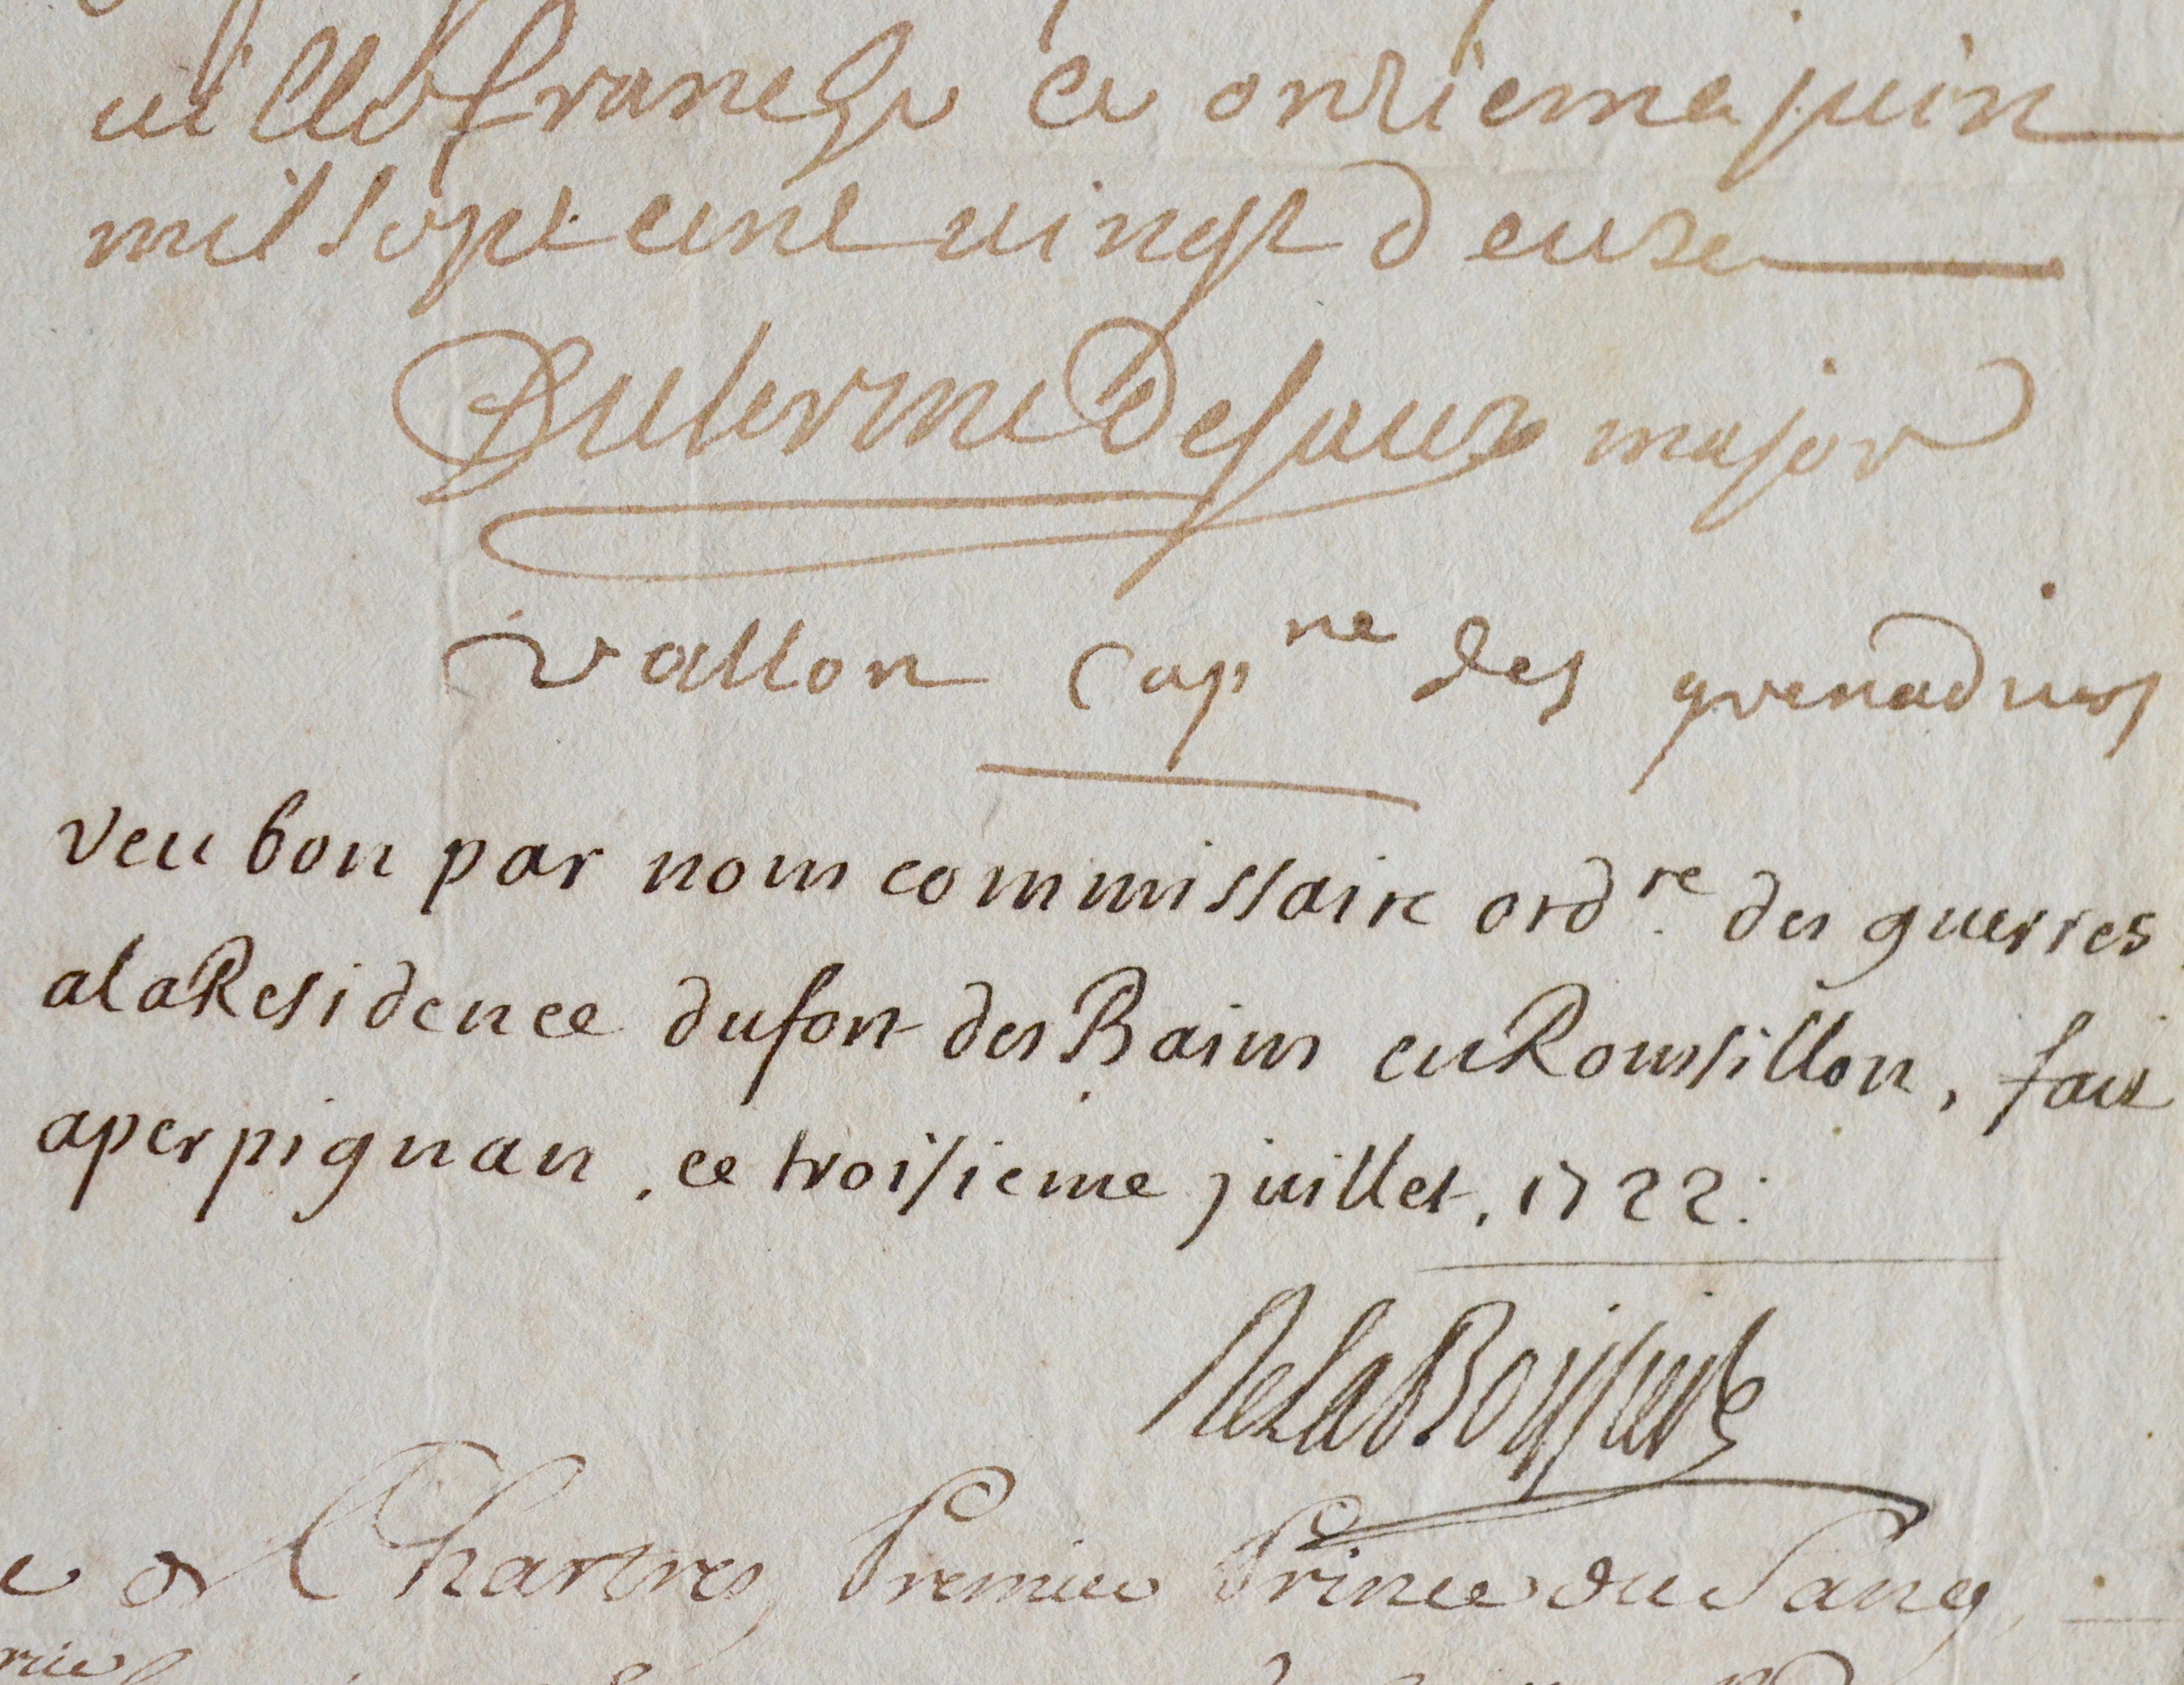 villefranche ce onziema juin
mil sept cent vingt deuse
Dulerme Desaux major
vallon Cap^ne des grenadiers
veu bon par nous commissaire ord^re. des guerres
alaResidence dufort des Bains enRoussillon, fait
aperpignan, ce troisieme juillet, 1722:
DelaBoissiere
e de Chartres, Premier Prince du Sang,